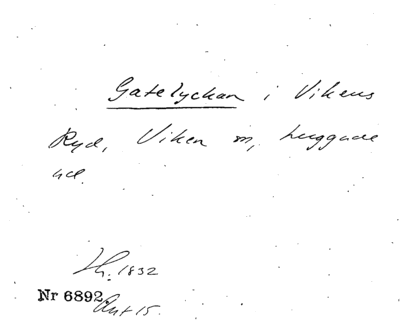 Gatelyckan i Vikens
Ryd, Viken sn, Luggude
hd.
Lh: 1832
Nr 6892
Ant 15.